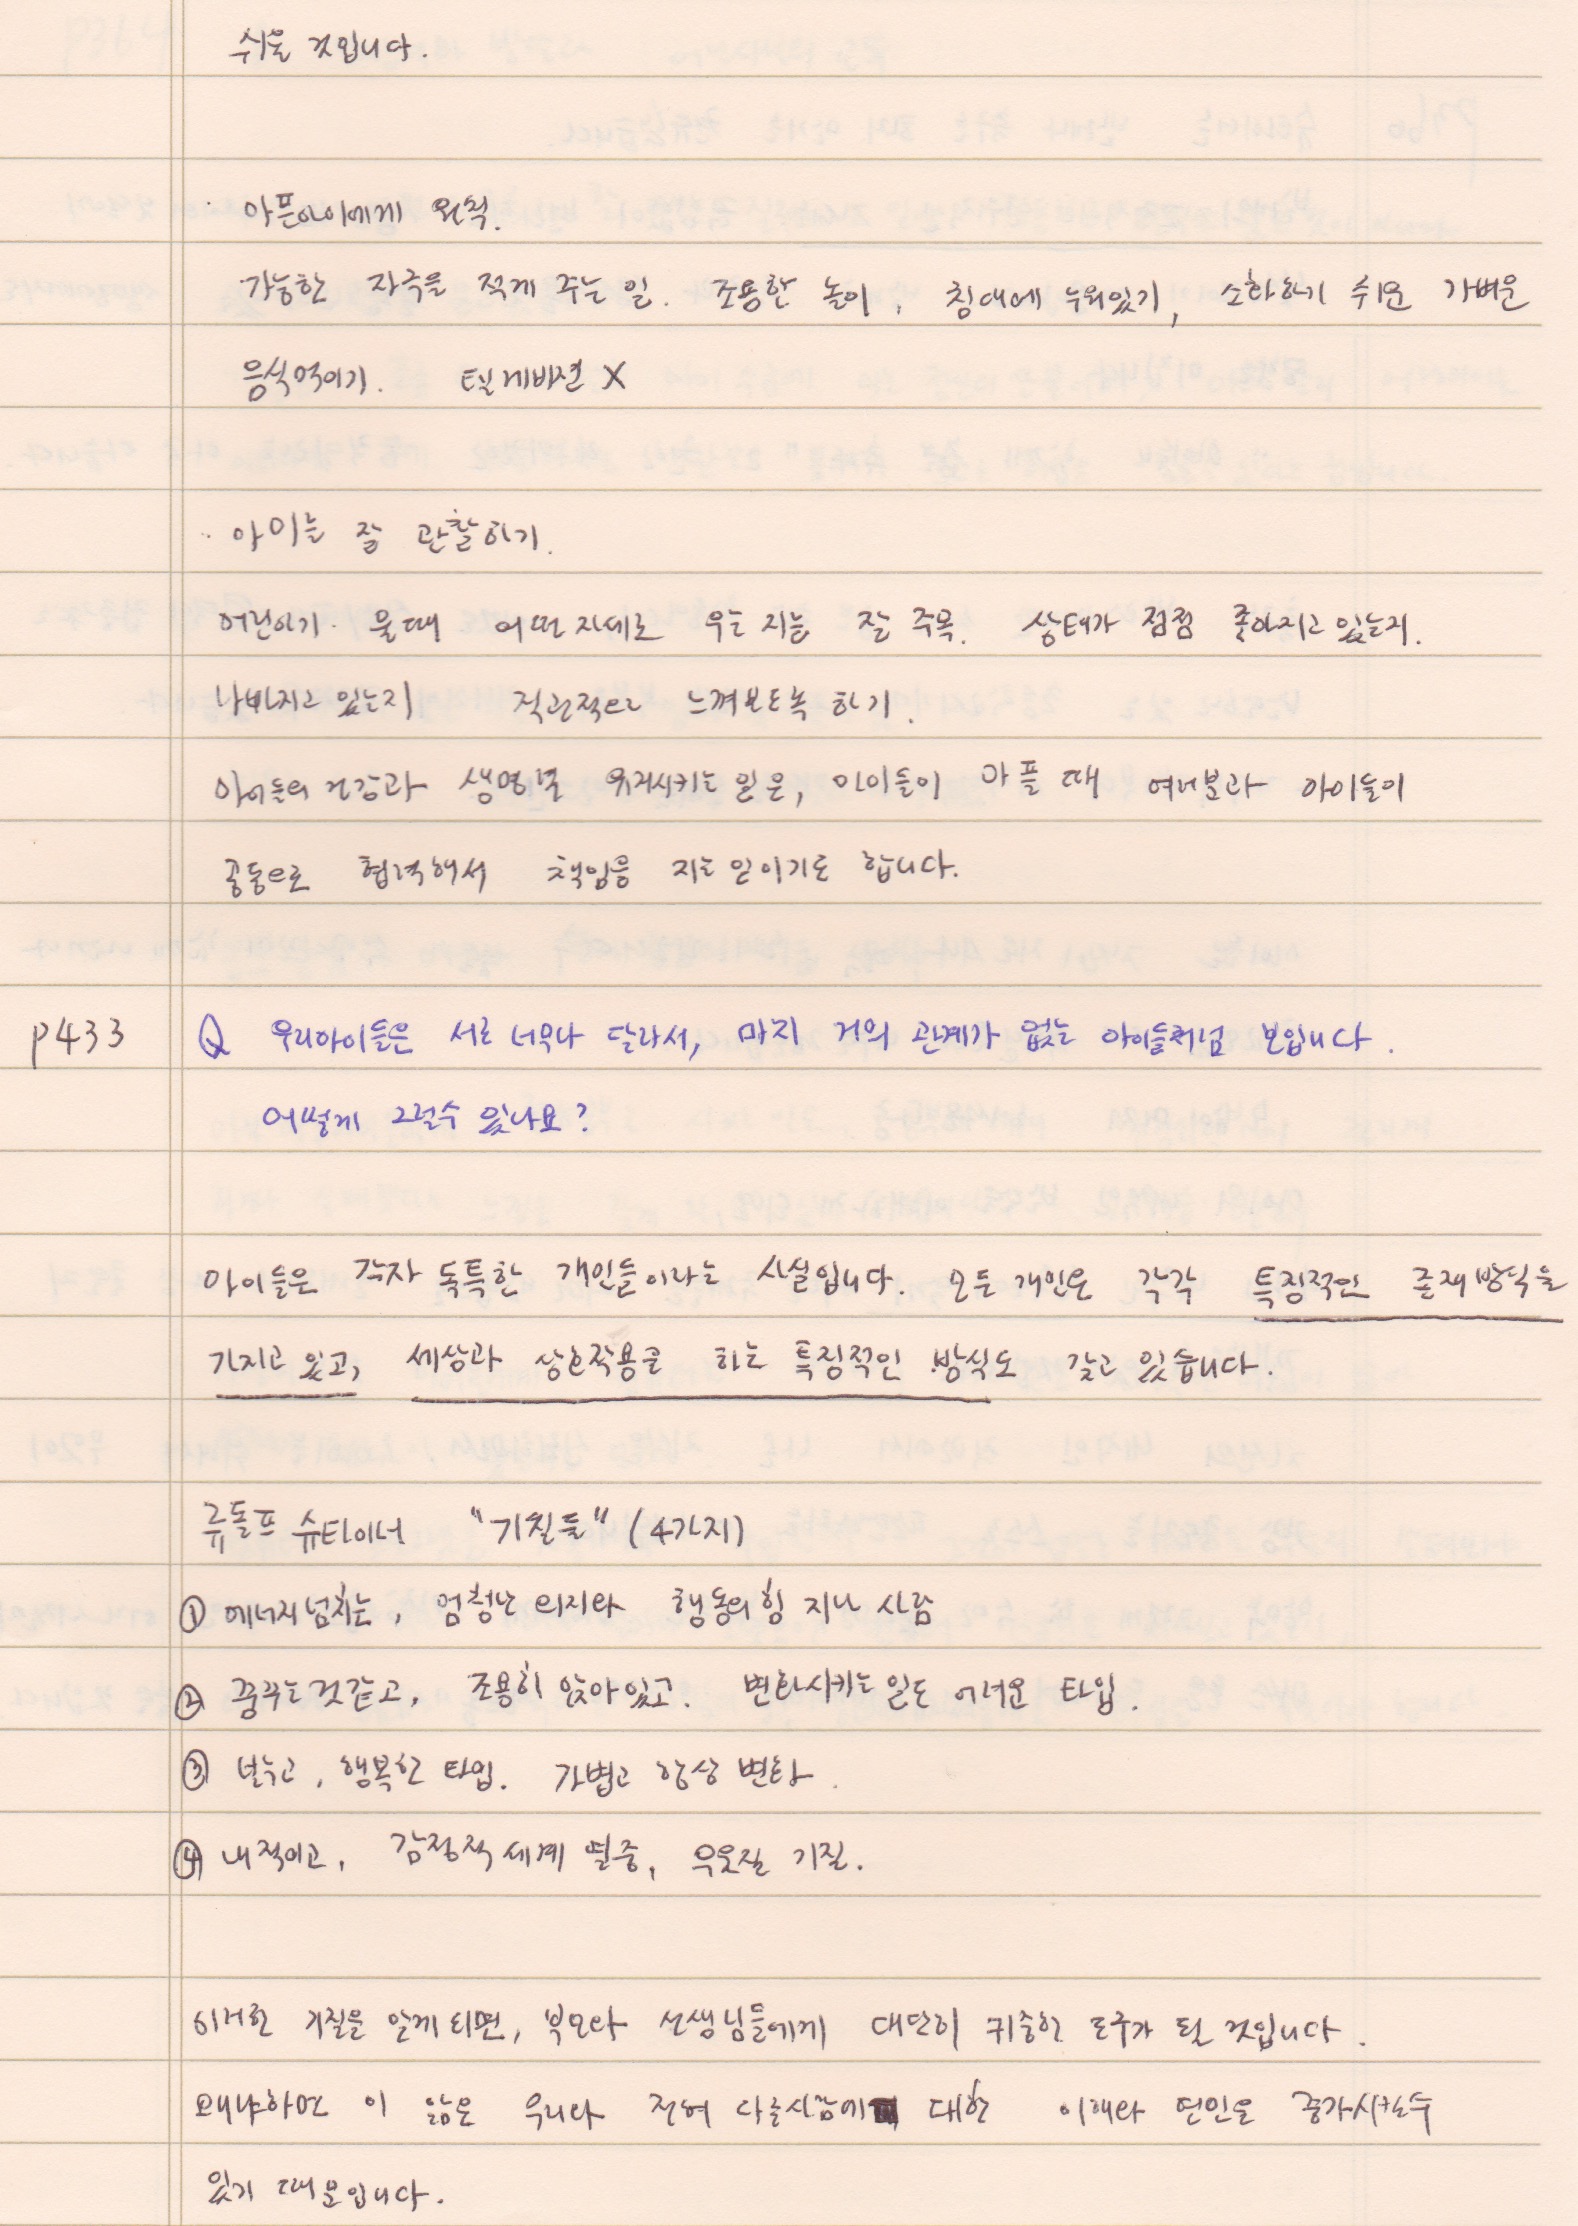 쉬울 것입니다.
· 아픈아이에게 원칙.
가능한 자극을 적게 주는 일. 조용한 놀이, 침대에 누워있기, 소화하기 쉬운 가벼운
음식먹이기. 텔레비젼 X
· 아이를 잘 관찰하기.
어린이가 울때 어떤 자세로 우는 지를 잘 주목. 상태가 점점 좋아지고 있는지.
나빠지고 있는지 직관적으로 느껴보도록 하기.
아이들의 건강과 생명력 유지시키는 일은, 아이들이 아플 때 여러분과 아이들이
공동으로 협력해서 책임을 지는 일이기도 합니다.
p433 Q 우리아이들은 서로 너무나 달라서, 마치 거의 관계가 없는 아이들처럼 보입니다.
어떻게 그럴수 있나요?
아이들은 각자 독특한 개인들이라는 사실입니다. 모든 개인은 각각 특징적인 존재방식을
가지고 있고, 세상과 상호작용을 하는 특징적인 방식도 갖고 있습니다.
루돌프 슈타이너 "기질들" (4가지)
① 에너지넘치는, 엄청난 의지와 행동의 힘 지닌 사람
② 꿈꾸는것같고, 조용히 앉아있고. 변화시키는 일도 어려운 타입.
③ 행복한 타입. 가볍고 항상 변화.
④ 내적이고, 감정적 세계 열중, 우울질 기질.
이러한 기질을 알게되면, 부모와 선생님들에게 대단히 귀중한 도구가 될 것입니다.
왜냐하면 이 앎은 우리와 전혀 다른사람에 대한 이해와 연민을 증가시킬수
있기 때문입니다.